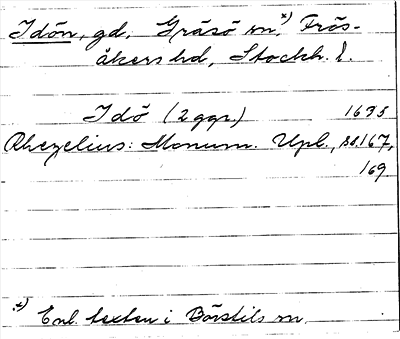 Idön, gd. Gräsö sn.*) Frös-
åkers hd, Stockh. l.
Idö (2 ggr.) 1635
Rhezelius: Monum. Upl., ss. 167,
169
*) Enl. texten i Börstils sn.